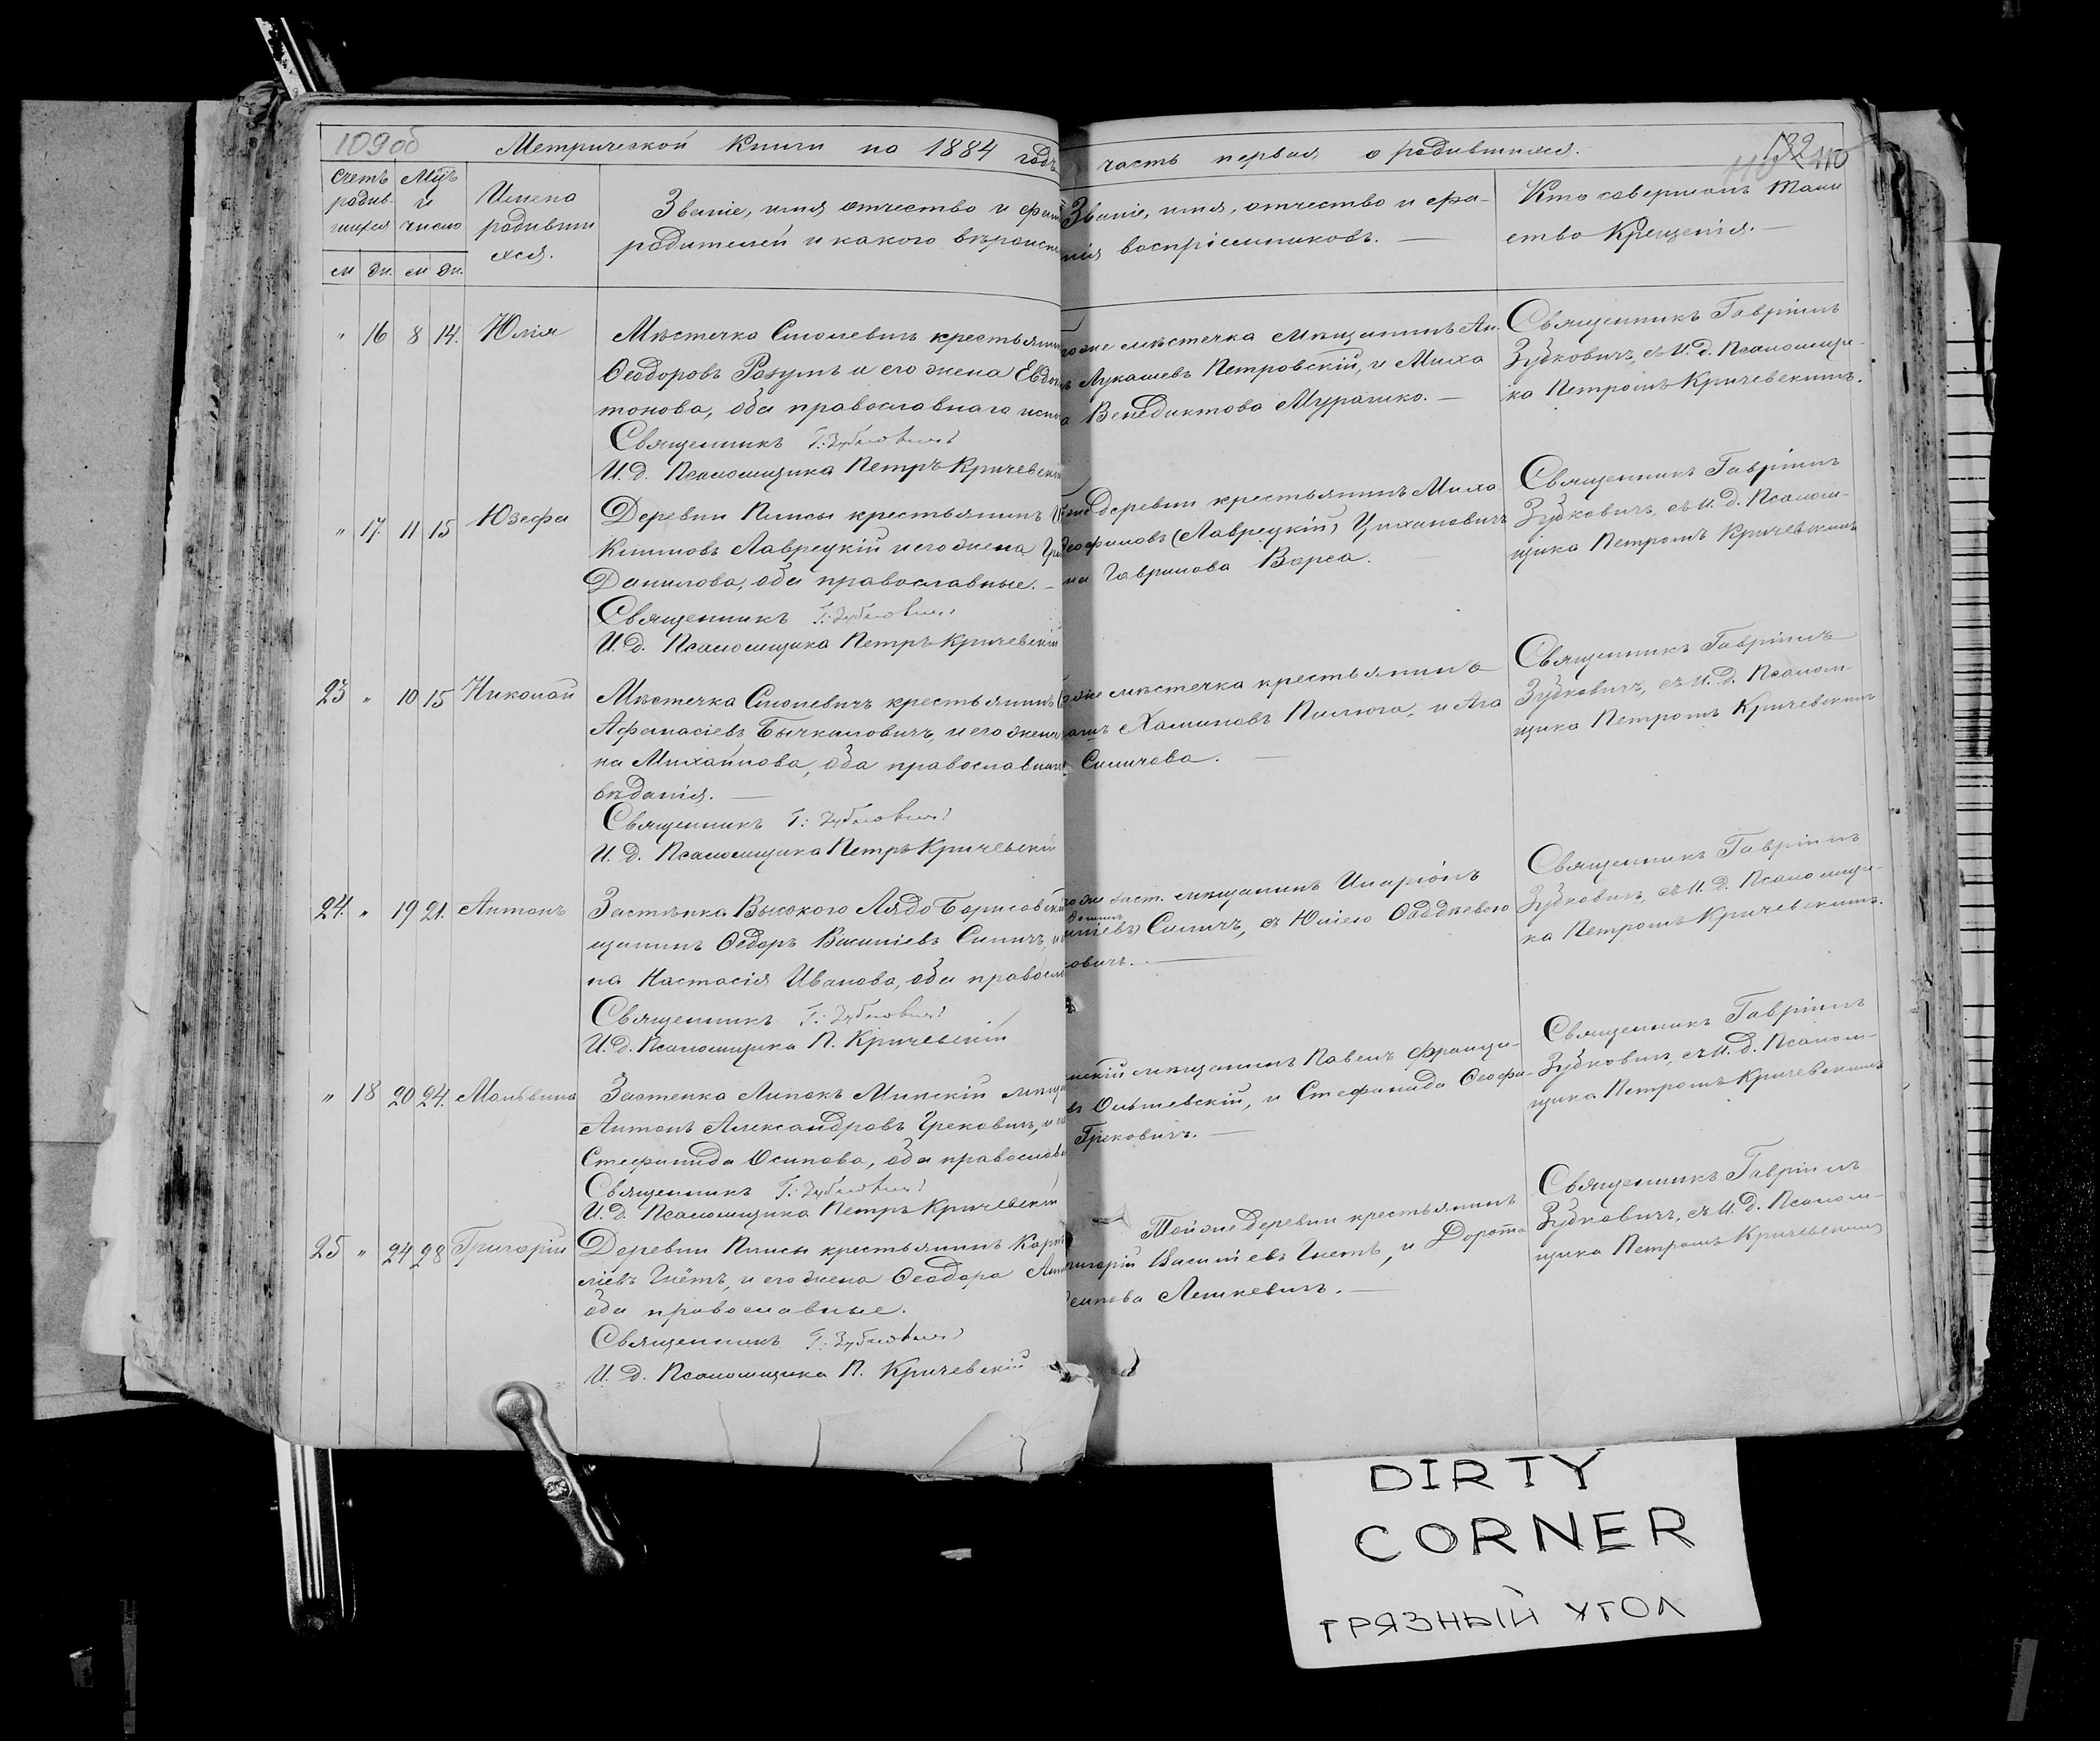 109об
Метрической Книги на 1884 годъ
часть первая о родившихся.
132
110
110
Счетъ родив- шихся
Мцъ и число
Имена родивши- хся.
Званіе, имя отчество и фами
родителей и какого вѣроиспо
Званіе, имя, отчество и фа-
нія воспріемниковъ. —
Кто совершалъ Таин
ство Крещенія. —
м дн. м дн.
" 16 8 14. Юлія
Мѣстечка Смолевичъ крестьянин
Ѳеодоровъ Разумъ и его жена Евдо
тонова, оба православнаго испо
Священникъ Г: Зубковичъ
И. д. Псаломщика Петръ Кричевскі
гоже мѣстечка мѣщанинъ Ан-
Лукашевъ Петровскій, и Миха
Венедиктова Мурашко. —
Священникъ Гавріилъ
Зубковичъ, съ И. д. Псаломщи-
ка Петромъ Кричевскимъ.
" 17. 11 15 Юзефа
Деревни Плисы крестьянинъ
Климовъ Лаврецкій и его жена
Данилова, оба православные. —
Священникъ Г: Зубковичъ
И. д. Псаломщика Петръ Кричевскій
же деревни крестьянинъ Миха
Ѳеофиловъ (Лаврецкій) Цихановичъ
на Гаврилова Варса.
Священникъ Гавріилъ
Зубковичъ, съ И. д. Псалом-
щика Петромъ Кричевскимъ
23 " 10 15 Николай
Мѣстечка Смолевичъ крестьянинъ
Афанасіевъ Бычкиловичъ, и его жена
на Михайлова, оба православнаг
вѣданія. —
Священникъ Г: Зубковичъ
И. д. Псаломщика Петръ Кричевскій
оже мѣстечка крестьянинъ
Пилюга, и Ага
Силичева. —
Священникъ Гавріилъ
Зубковичъ, съ И. д. Псалом-
щика Петромъ Кричевскимъ
24. " 19 21. Антонъ
Застѣнка Высокого Лядо Борисовскій
щанинъ Ѳедоръ Василіевъ Силичъ, и
на Настасія Ивановa, оба правосла
Священникъ Г: Зубковичъ
И. д. Псаломщика П. Кричевскій
гоже заст. мѣщанинъ Иларіонъ
Силичъ, съ Юліею Ѳаддѣевою
ковичъ. —
Священникъ Гавріилъ
Зубковичъ, съ И. д. Псаломщи-
ка Петромъ Кричевскимъ.
" 18 20 24. Мальвина
Застенка Липокъ Минскій мѣща
Антонъ Александровъ Грековичъ, и е
Стефанида Осипова, оба православ
Священникъ Г: Зубковичъ
И. д. Псаломщика Петръ Кричевскій
нскій мѣщанинъ Павелъ Франци-
въ Ольшевскій, и Стефанида Ѳеофи-
Грековичъ. —
Священникъ Гавріилъ
Зубковичъ, съ И. д. Псалом-
щика Петромъ Кричевскимъ
25 " 24 28 Григорій
Деревни Плисы крестьянинъ Карп
сіевъ Гнётъ, и его жена Ѳеодора Ант
оба православные.
Священникъ Г: Зубковичъ
И. д. Псаломщика П. Кричевскій
Тойже деревни крестьянинъ
ригорій Василіевъ Гнетъ, и Дорота
сипова Лешкевичъ. —
Священникъ Гавріилъ
Зубковичъ, съ И. д. Псалом-
щика Петромъ Кричевскимъ
DIRTY
CORNER
ГРЯЗНЫЙ УГОЛ